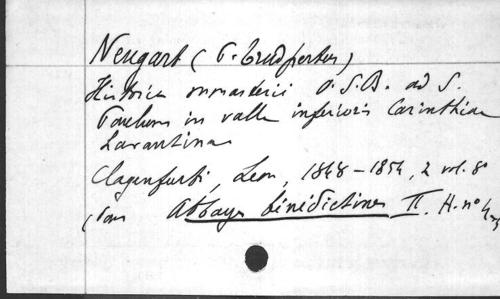 Neugart (P. Trudpertus)
Historia monasterii O.S.B. ad S.
Paulum in valle inferioris Carinthiae
Lavantina
Clagenfurti, Leon, 1848-1854, 2 vol. 8°
(Dans Abbayes bénédictines II. H. n°